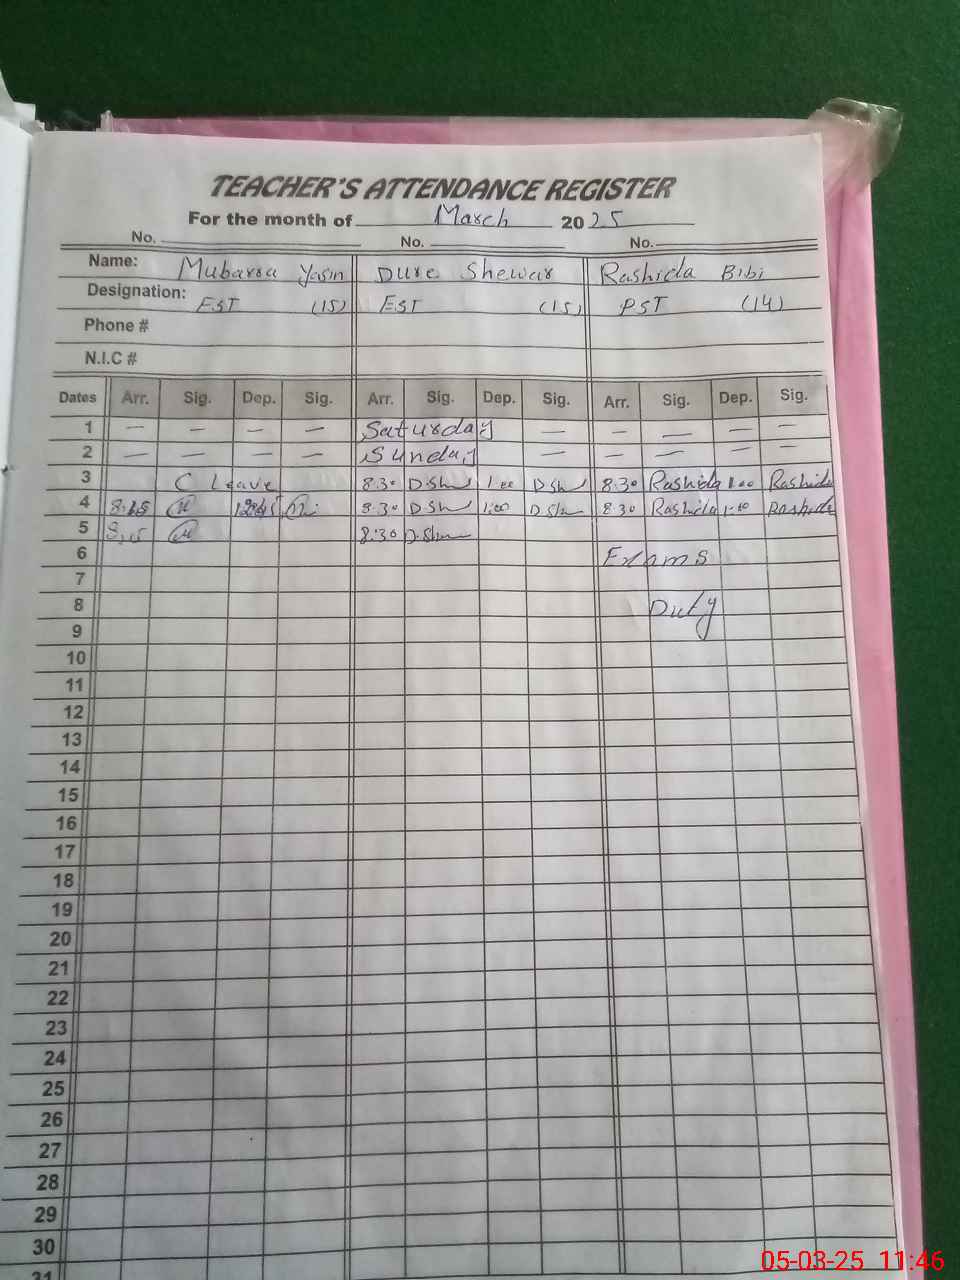 TEACHER'S ATTENDANCE REGISTER
For the month of March 2025
No. No. No.
Name: Mubarra Yasin Dure Shewar Rashida Bibi
Designation: EST (15) EST (15) PST (14)
Phone #
N.I.C #
Dates Arr. Sig. Dep. Sig. Arr. Sig. Dep. Sig. Arr. Sig. Dep. Sig.
1 — — — — Saturday — — — — —
2 — — — — Sunday — — — — —
3 C Leave 8:30 D.Sh 1:00 D.Sh 8:30 Rashida 1:00 Rashida
4 8:15 12:45 8:30 D.Sh 1:00 D.Sh 8:30 Rashida 1:00 Rashida
5 8:15 8:30 D.Sh
6 Exams
7
8 Duty
9
10
11
12
13
14
15
16
17
18
19
20
21
22
23
24
25
26
27
28
29
30
31
05-03-25 11:46